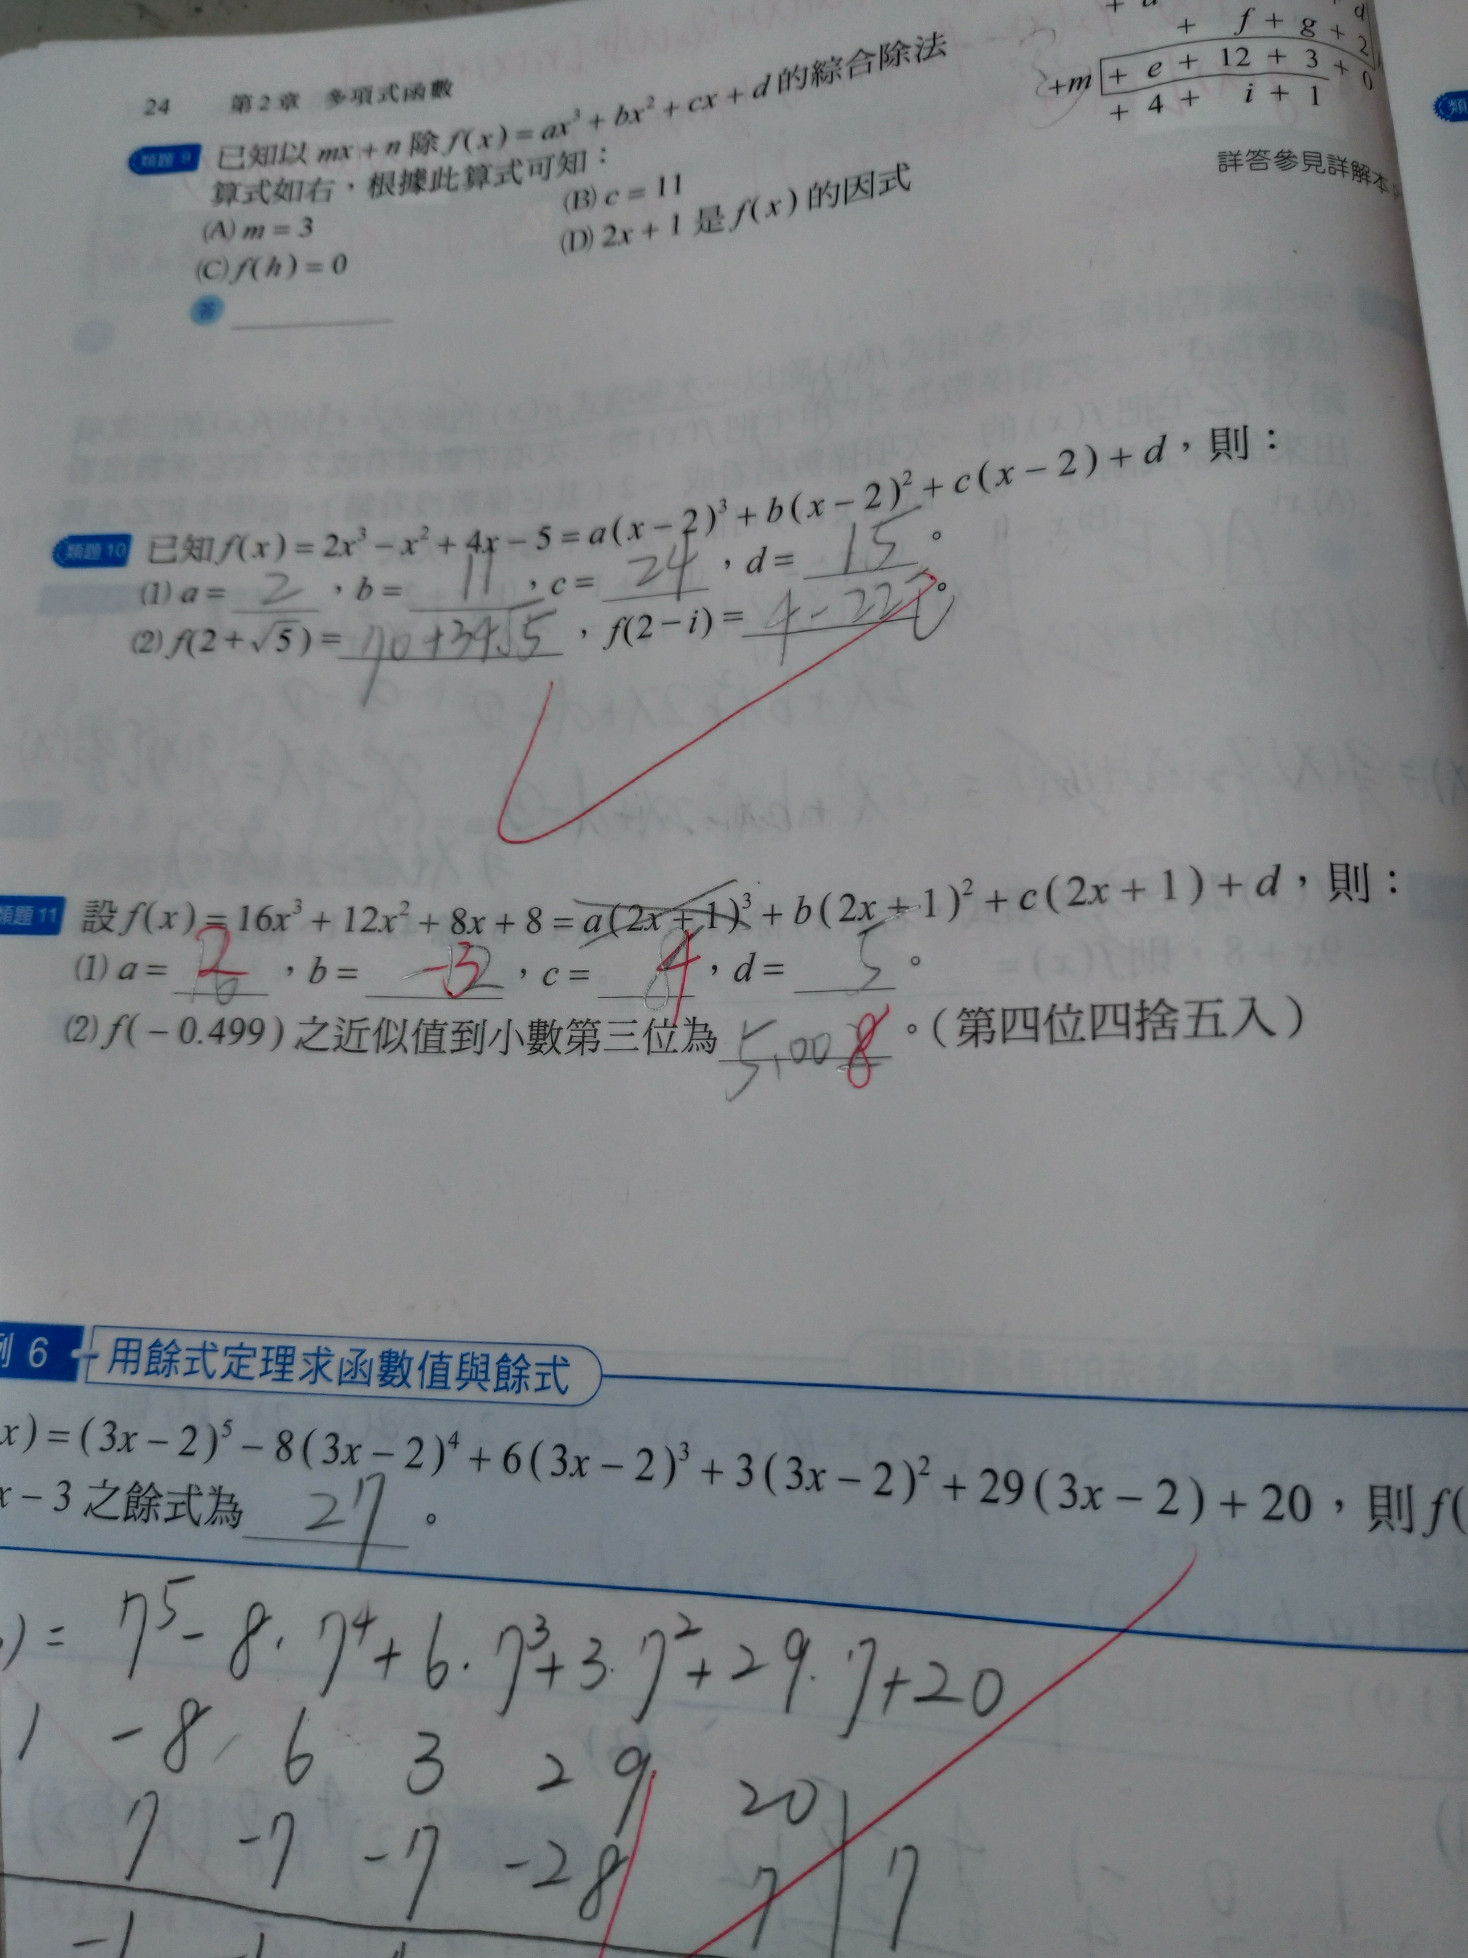 24 第2章 多項式函數
類題9 已知以 mx + n 除 f(x) = ax³ + bx² + cx + d 的綜合除法
算式如右，根據此算式可知：
(A) m = 3 (B) c = 11
(C) f(h) = 0 (D) 2x + 1 是 f(x) 的因式
答
+ f + g + 2
+m + e + 12 + 3 + 0
+ 4 + i + 1
詳答參見詳解本
類題10 已知 f(x) = 2x³ − x² + 4x − 5 = a(x − 2)³ + b(x − 2)² + c(x − 2) + d，則：
(1) a = 2，b = 11，c = 24，d = 15。
(2) f(2 + √5) = 70+34√5，f(2 − i) = 4-22i。
類題11 設 f(x) = 16x³ + 12x² + 8x + 8 = a(2x + 1)³ + b(2x + 1)² + c(2x + 1) + d，則：
(1) a = 2，b = -3，c = 4，d = 5。
(2) f(− 0.499) 之近似值到小數第三位為 5.008。（第四位四捨五入）
例 6 用餘式定理求函數值與餘式
x) = (3x − 2)⁵ − 8(3x − 2)⁴ + 6(3x − 2)³ + 3(3x − 2)² + 29(3x − 2) + 20，則 f(
x − 3 之餘式為 27。
) = 7⁵ - 8·7⁴ + 6·7³ + 3·7² + 29·7 + 20
1 -8 6 3 29 20
7 -7 -7 -28 7 7